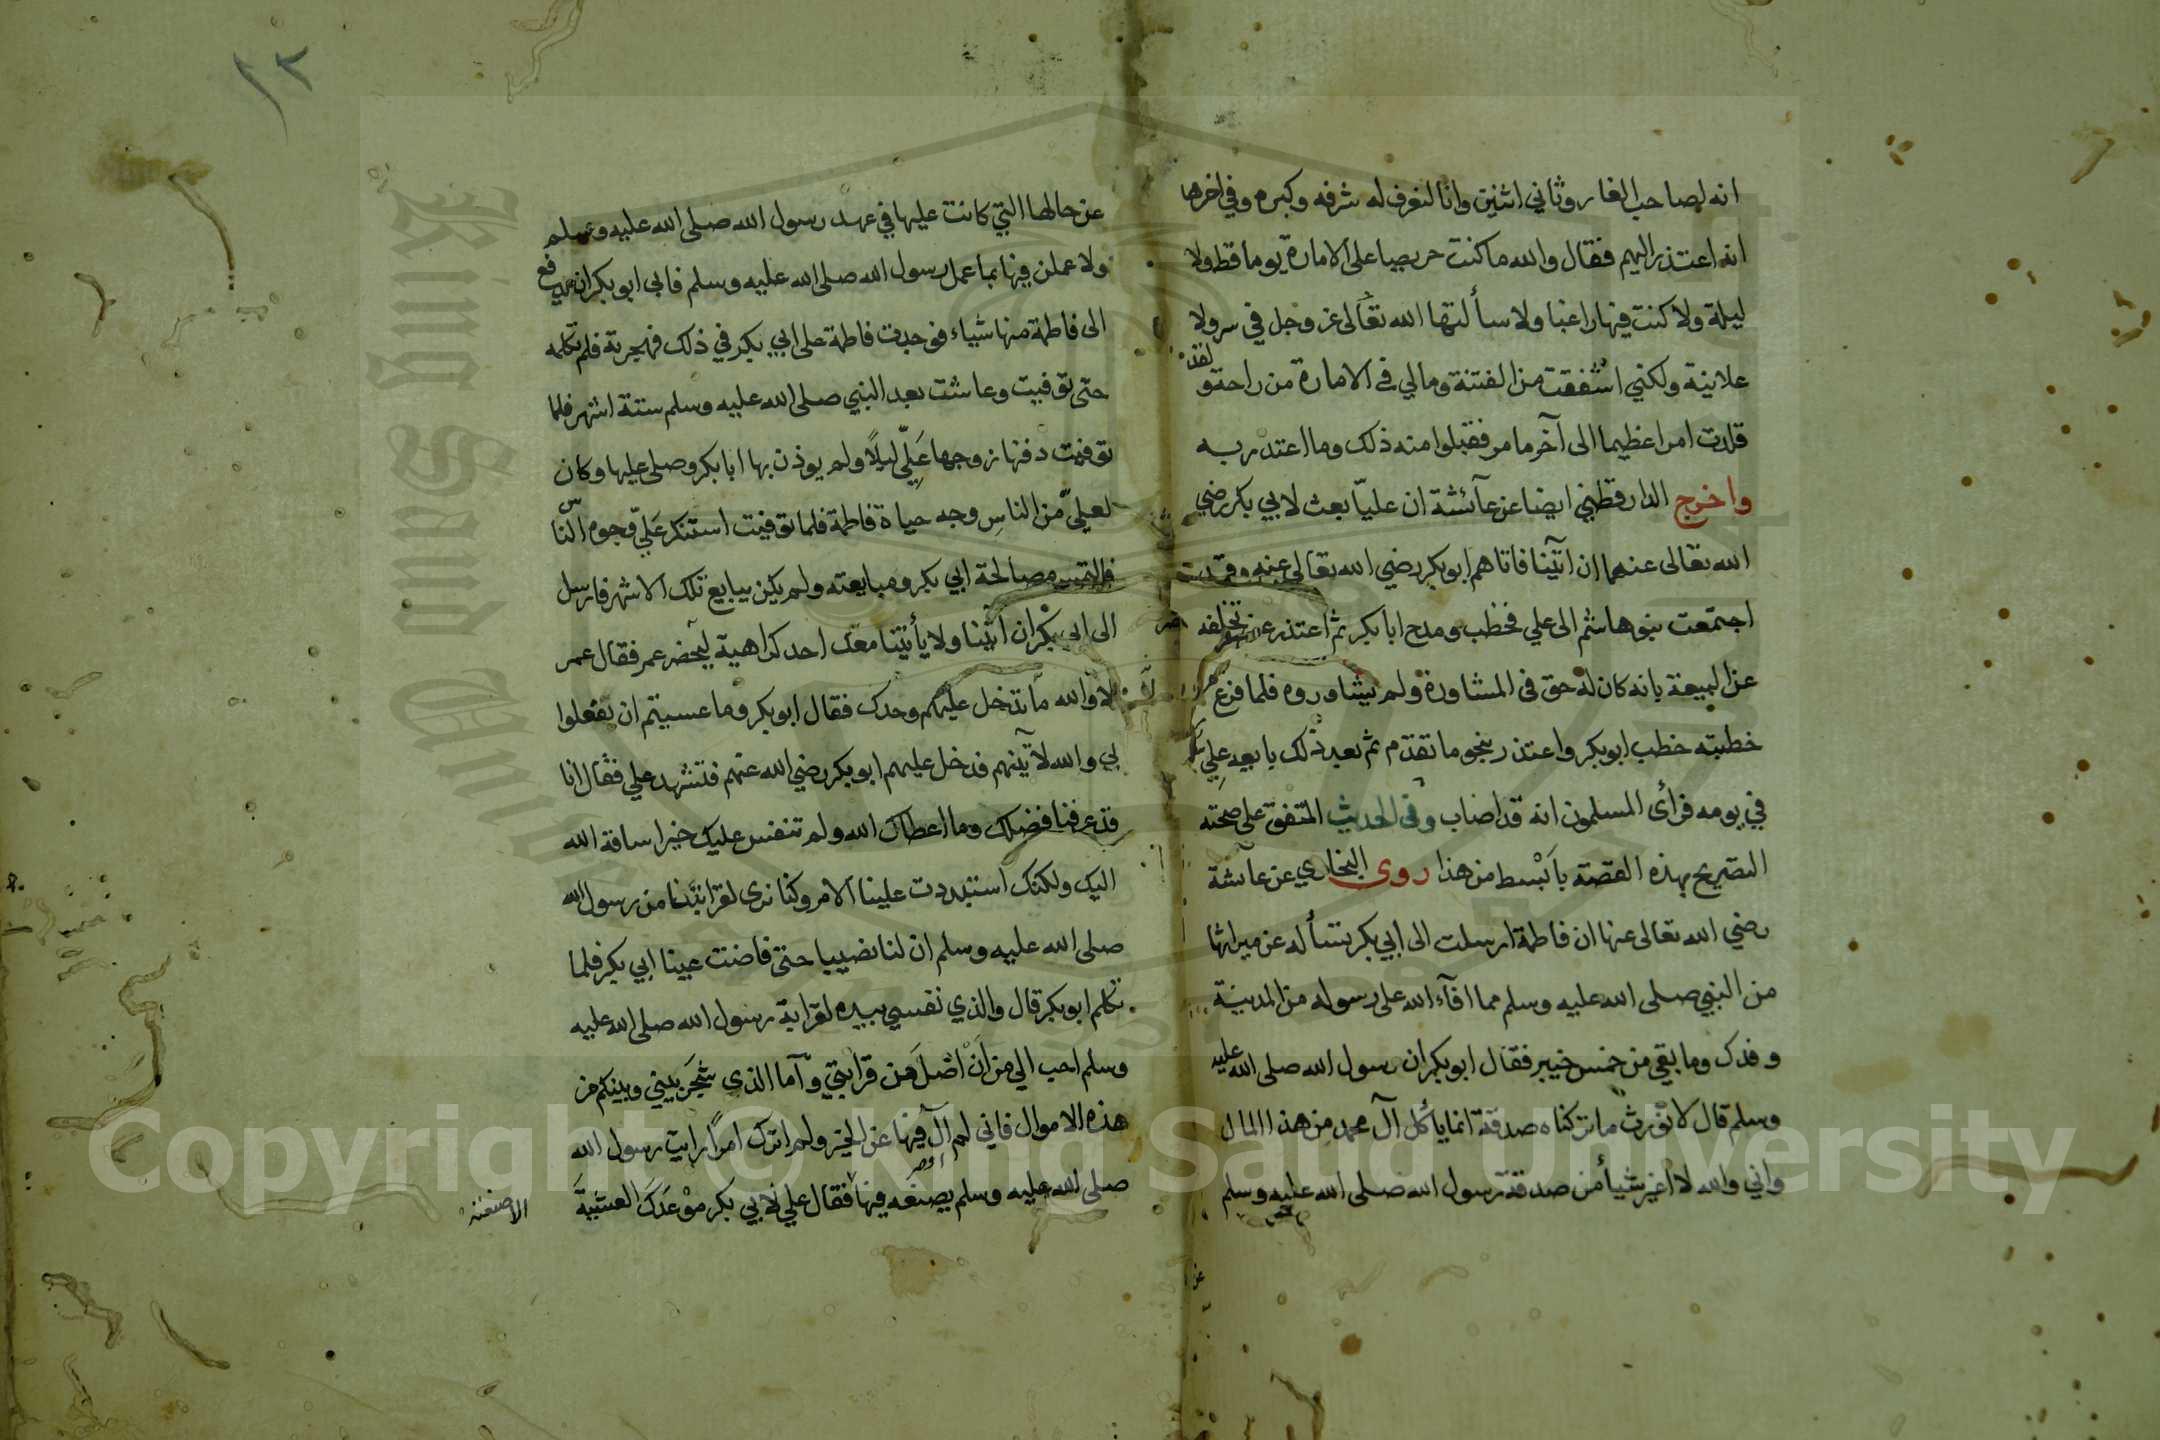 ١٢
انه لصاحب الغار وثاني اثنين وانا لنعرف له شرفه وكبره وفي اخرها
انه اعتذر اليهم فقال والله ما كنت حريصا على الامارة يوما قط ولا
ليلة ولا كنت فيها راغبا ولا سألتها الله تعالى عز وجل في سر ولا
علانية ولكني اشفقت من الفتنة ومالي في الامارة من راحة ولقد
قلدت امرا عظيما الى آخر ما مر فقبلوا منه ذلك وما اعتذر به
واخرج الدارقطني ايضا عن عآئشة ان عليّا بعث لابي بكر رضي
الله تعالى عنهما ان اتٓينا فاتاهم ابو بكر رضي الله تعالى عنه وقد
اجتمعت بنو هاشم الى علي فخطب ومدح ابا بكر ثم اعتذر عن تخلفه
عن البيعة بانه كان له حق في المشاورة ولم يشاوروه فلما فرغ من
خطبته خطب ابو بكر واعتذر بنحو ما تقدم ثم بعد ذلك بايعه علي
في يومه فرأى المسلمون انه قد اصاب وفي الحديث المتفق على صحته
التصريح بهذه القصة بابْسط من هذا روى البخاري عن عائشة
رضي الله تعالى عنها ان فاطمة ارسلت الى ابي بكر تسأله عن ميراثها
من النبي صلى الله عليه وسلم مما افآء الله على رسوله من المدينة
وفدك وما بقي من خمس خيبر فقال ابو بكر ان رسول الله صلى الله عليه
وسلم قال لا نورث ما تركناه صدقة انما يأكل آل محمد من هذا المال
واني والله لا اغير شيأ من صدقة رسول الله صلى الله عليه وسلم
عن حالها التي كانت عليها في عهد رسول الله صلى الله عليه وسلم
ولا عملن فيها بما عمل رسول الله صلى الله عليه وسلم فابى ابو بكر ان يدفع
الى فاطمة منها شياء فوجدت فاطمة على ابي بكر في ذلك فهجرته فلم تكلمه
حتى توفيت وعاشت بعد النبي صلى الله عليه وسلم ستة اشهر فلما
توفيت دفنها زوجها عَلِيّ ليلًا ولم يوذن بها ابا بكر وصلى عليها وكان
لعليّ من الناس وجه حياة فاطمة فلما توفيت استنكر عَلِيّ وجوه النّاس
فالتمس مصالحة ابي بكر ومبايعته ولم يكن يبايع تلك الاشهر فارسل
الى ابي بكْر ان اتٓينا ولا يأتينا معك احد كراهية ليحضر عمر فقال عمر
لا والله ما تدخل عليهم وحدك فقال ابو بكر وما عسيتم ان يفعلوا
بي والله لآتينهم فدخل عليهم ابو بكر رضي الله عنهم فتشهد علي فقال انا
قد عرفنا فضلك وما اعطاك الله ولم ننفس عليك خيرا ساقه الله
اليك ولكنك استبددت علينا الامر وكنا نرى لقرابتنا من رسول الله
صلى الله عليه وسلم ان لنا نصيبا حتى فاضت عينا ابي بكر فلما
تكلم ابو بكر قال والذي نفسي بيده لقرابة رسول الله صلى الله عليه
وسلم احب الي من اَنْ اصل من قرابتي وآما الذي شجر بيني وبينكم من
هذه الاموال فاني لم آل فيها عن الخير ولم اترك امرًا رايت رسول الله
صلى الله عليه وسلم يصنعه فيها فقال علي لابي بكر موْعدَك العشية
الا صنعته
Copyright © King Saud University
King Saud University